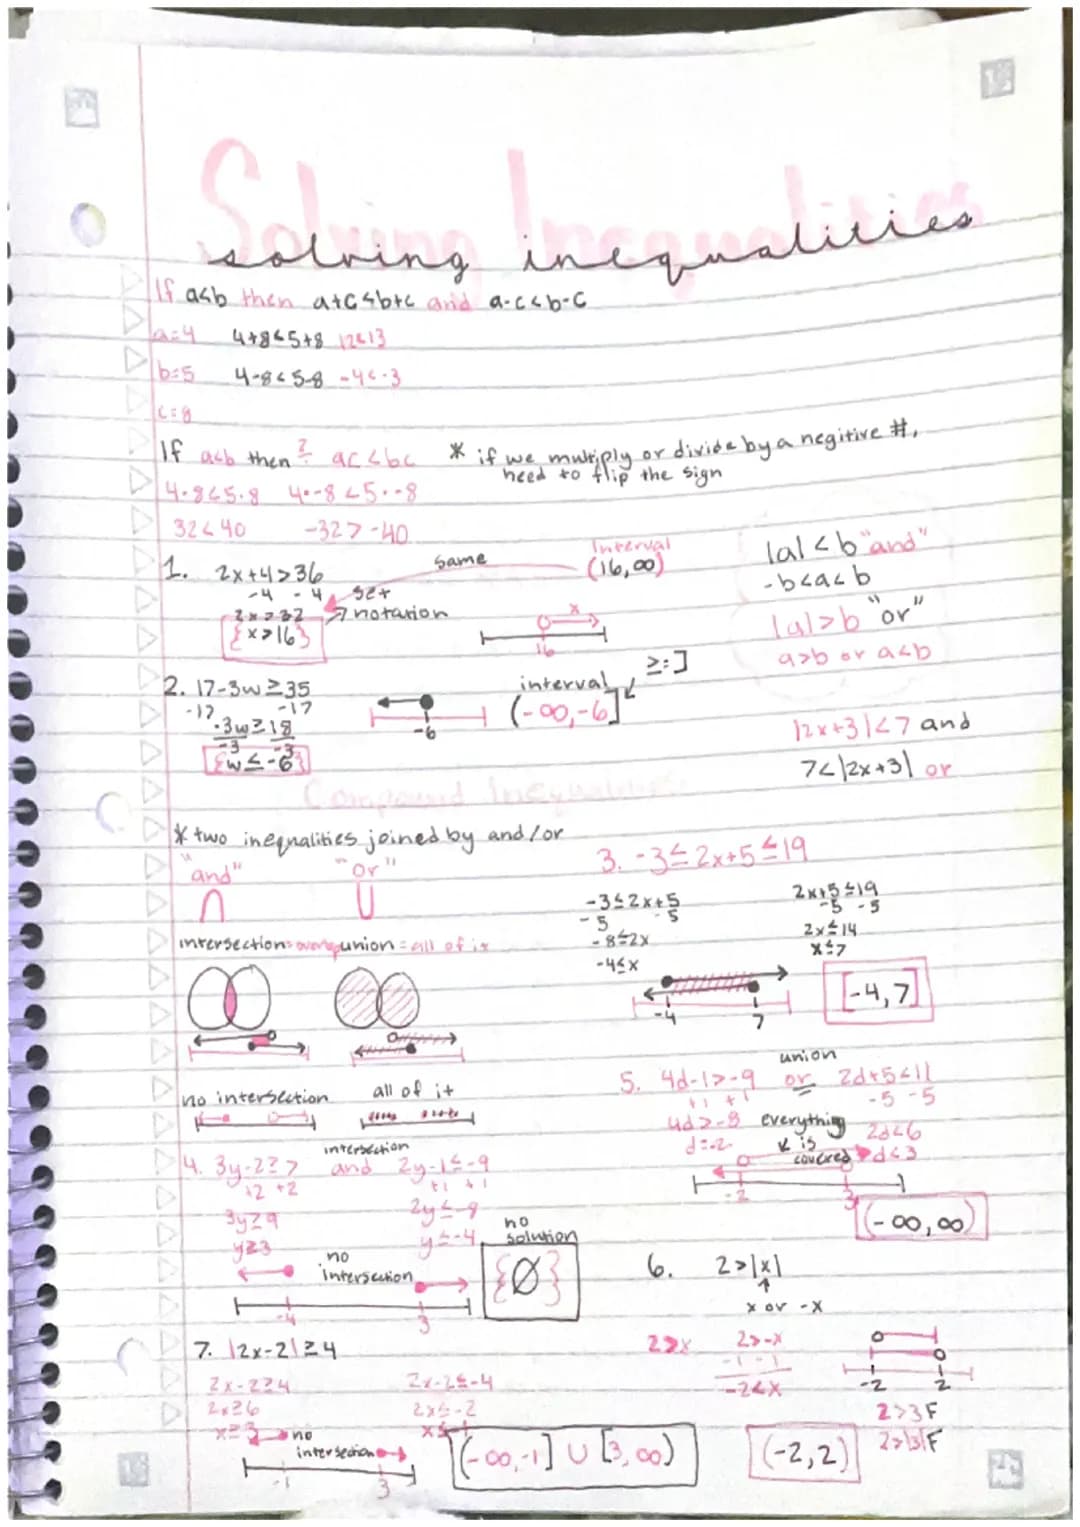 Solving Inequalities
solving inequalities
If a<b then a+c<b+c and a-c<b-c
a=4 4+8<5+8 12<13
b=5 4-8<5-8 -4<-3
c=8
If a<b then ? ac<bc * if we multiply or divide by a negitive #,
need to flip the sign
4·8<5·8 4·-8<5·-8
32<40 -32>-40
1. 2x+4>36 same Interval
-4 -4 set (16,∞)
2x>32 notation
{x>16} x
16
|a|<b "and"
-b<a<b
|a|>b "or"
a>b or a<b
2. 17-3w≥35 interval ≥=]
-17 -17 (-∞,-6]
-3w≥18 -6
-3 -3
{w≤-6}
|2x+3|<7 and
7<|2x+3| or
Compound Inequalities
* two inequalities joined by and/or
"and" "or"
∩ U
intersection= union = all of it
3. -3≤2x+5≤19
-3≤2x+5 2x+5≤19
-5 -5 -5 -5
-8≤2x 2x≤14
-4≤x x≤7
-4 7 [-4,7]
no intersection all of it
union
5. 4d-1>-9 or 2d+5<11
+1 +1 -5 -5
4d>-8 everything 2d<6
d>-2 is covered d<3
-2 3
(-∞,∞)
intersection
4. 3y-2≥7 and 2y-1≤-9
+2 +2 +1 +1
3y≥9 2y≤-8
y≥3 y≤-4
no intersection
no solution
{Ø}
-4 3
6. 2>|x|
x or -x
2>x 2>-x
-1 -1
-2<x
-2 2
2>3 F
2>|3| F
(-2,2)
7. |2x-2|≥4
2x-2≥4 2x-2≤-4
2x≥6 2x≤-2
x≥3
no intersection
-1 3
(-∞,-1] U [3,∞)